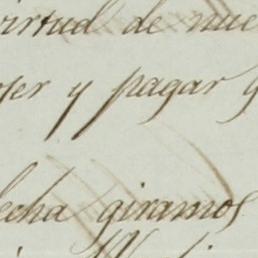 virtud de nue
y pagar
fecha giramos